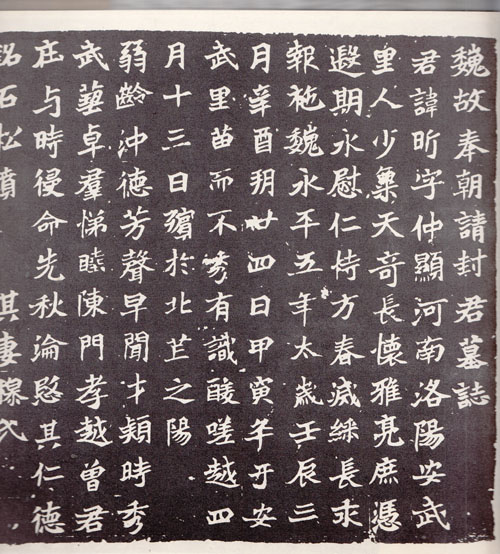 魏故奉朝請封君墓誌
君諱昕字仲顯河南洛陽安武
里人少集天奇長懷雅亮庶憑
遐期永慰仁恃方春滅綵長求
報施魏永平五年太歲壬辰三
月辛酉朔廿四日甲寅卒于安
武里苗而不秀有識酸嗟越四
月十三日殯於北芒之陽
弱齡沖德芳聲早聞才穎時秀
武藝卓羣悌睦陳門孝越曾君
庄与時侵命先秋淪愍其仁德
銘石松墳 其妻穆氏